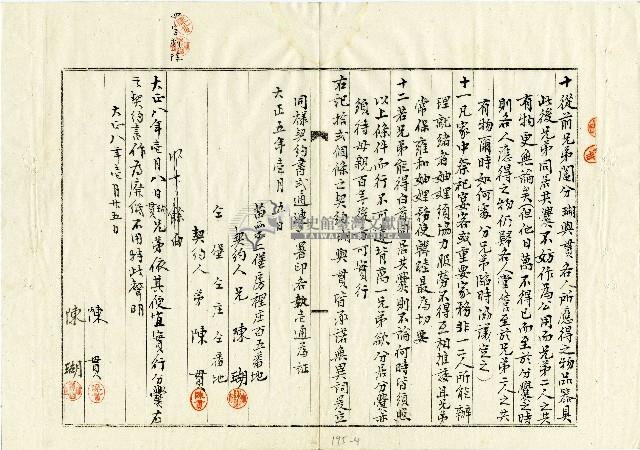 十從前兄弟鬮分瑚與貫各人所應得之物品器具
此後兄弟同居共爨不妨作為公用而兄弟二人之共
有物更無論矣(但他日萬不得已而至於分爨之時
則各人應得之物仍歸各人掌管至於兄弟二人之共
有物爾時如何處分兄弟臨時協議定之)
十一凡家中祭祀宴客或重要家務非一二人所能辦
理就緒者妯娌須協力服勞不得互相推諉且兄弟
常保雍和妯娌務使輯睦最為切要
十二若兄弟能得白首同居共爨則不論何時皆須照
以上條件而行不可違背萬一兄弟欲分居分爨亦
須待母親百年後方可實行
右記拾貳個條之契約瑚與貫皆承諾無異詞爰立
同樣契約書貳通連署印各執壹通為証
大正五年壹月五日
苗栗一堡房裡庄百五番地
契約人兄 陳瑚
仝堡仝庄仝番地
契約人弟 陳貫
大正八年壹月八日瑚貫兄弟依其便宜實行分爨右
之契約書作為廢紙不用特此聲明
大正八年壹月廿五日
陳貫
陳瑚
195-4